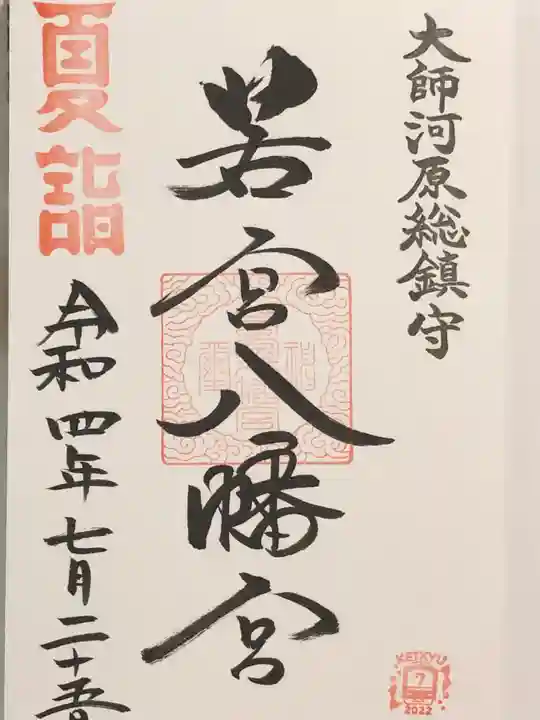 大師河原総鎮守
若宮八幡宮
夏詣
令和四年七月二十五
KEIKYU
7
2022